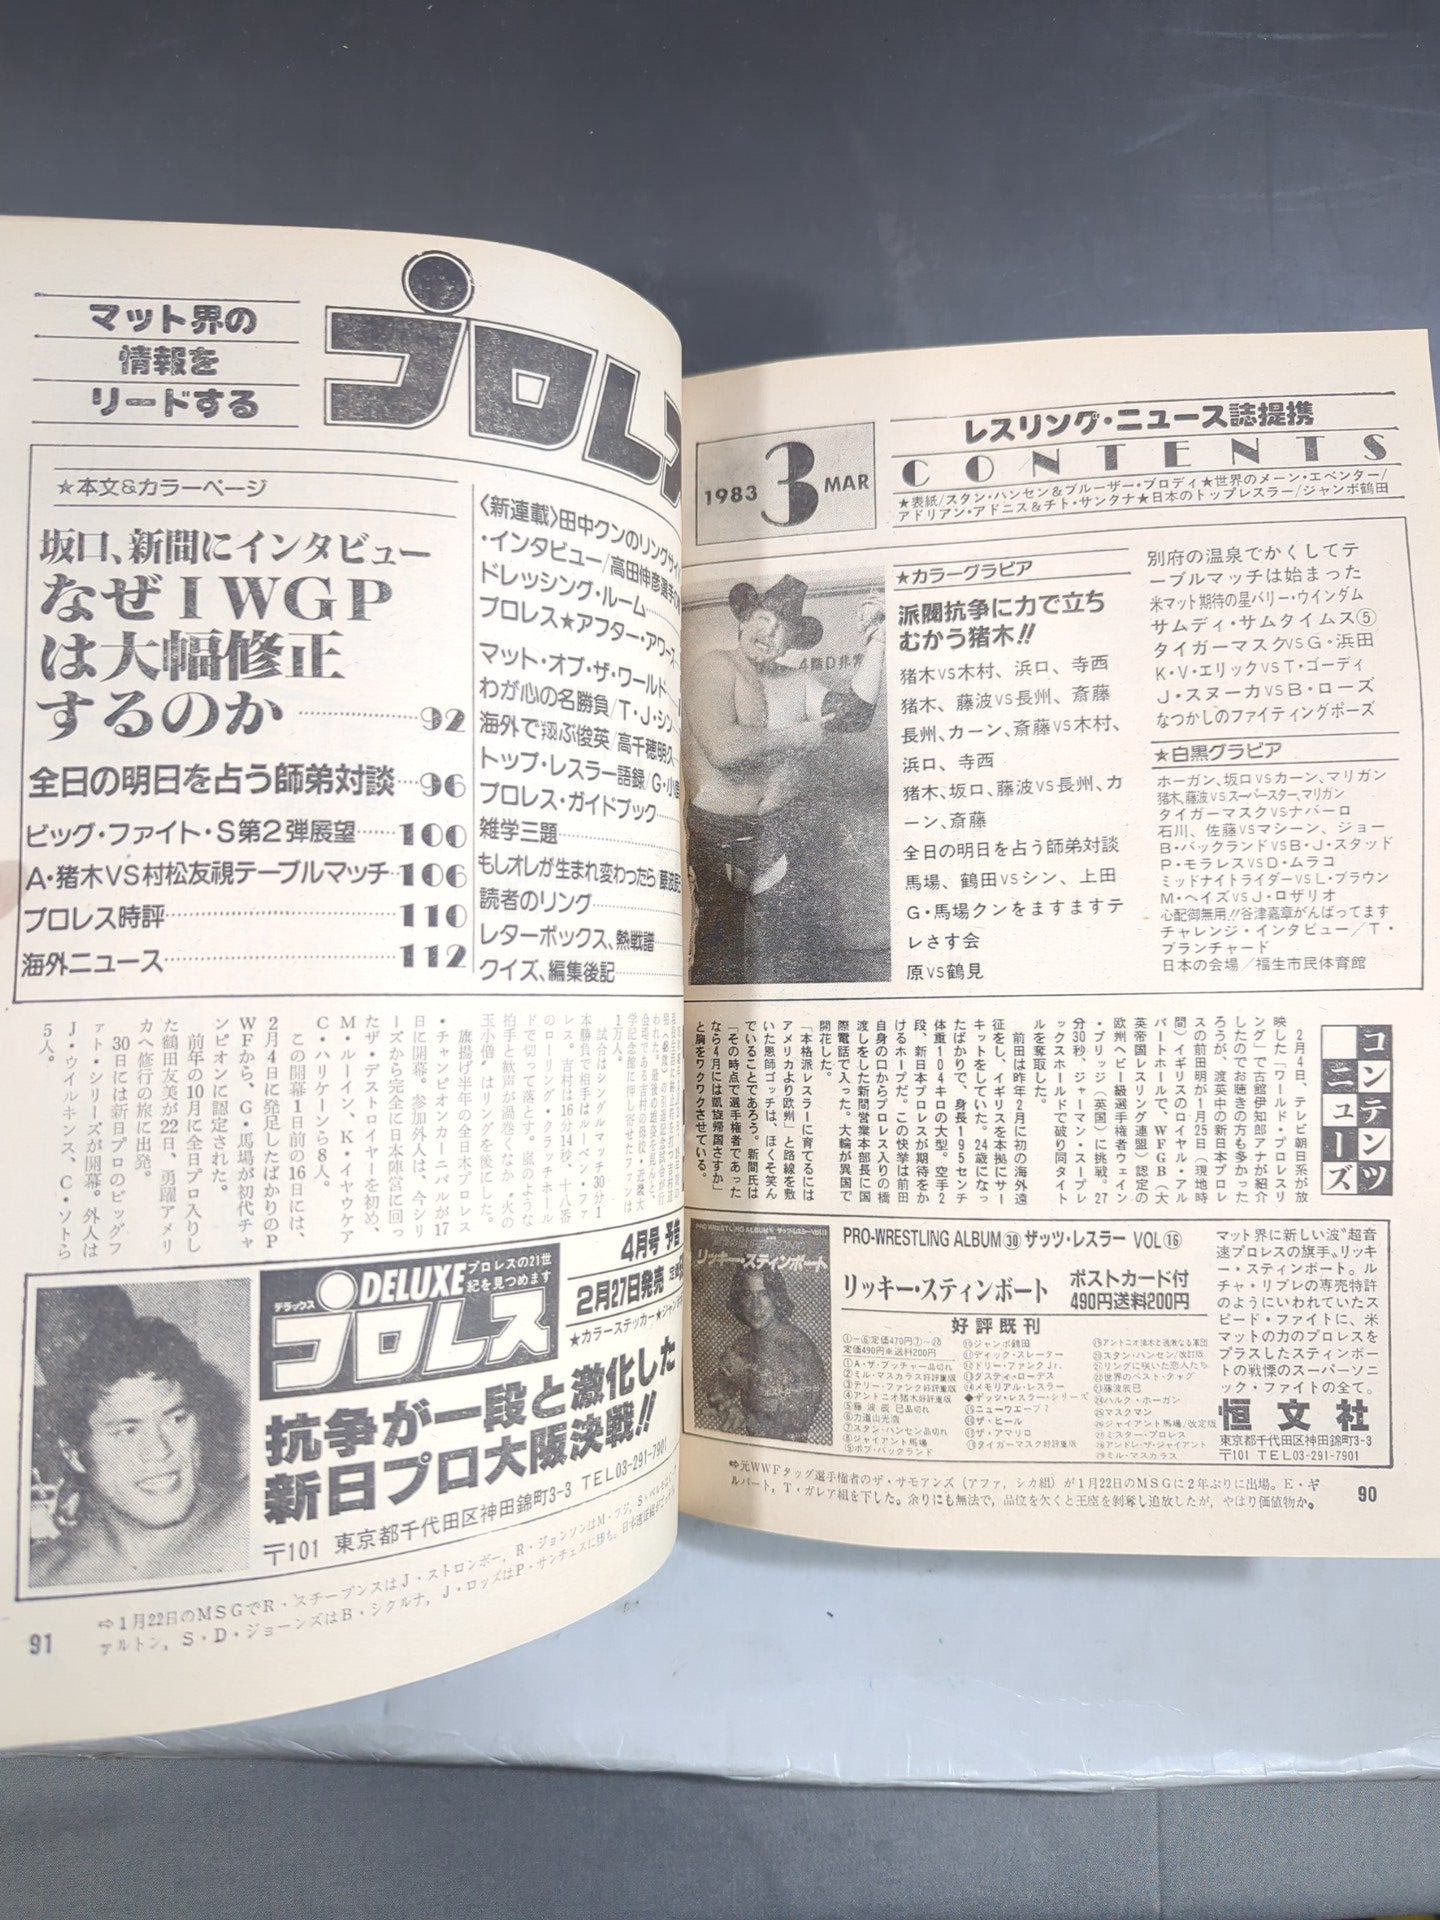 マット界の
情報を
リードする
プロレス
★本文&カラーページ
坂口、新間にインタビュー
なぜIWGP
は大幅修正
するのか………………92
全日の明日を占う師弟対談…96
ビッグ・ファイト・S第2弾展望……100
A・猪木VS村松友視テーブルマッチ…106
プロレス時評………………110
海外ニュース………………112
〈新連載〉田中クンのリングサイ
・インタビュー/高田伸彦選手の
ドレッシング・ルーム
プロレス★アフター・アワーズ
マット・オブ・ザ・ワールド
わが心の名勝負/T・J・シン
海外で翔ぶ俊英/高千穂明久
トップ・レスラー語録/G・小
プロレス・ガイドブック
雑学三題
もしオレが生まれ変わったら/藤波
読者のリング
レターボックス、熱戦譜
クイズ、編集後記
試合はシングルマッチ30分1
本勝負で相手はルーツ・ファ
レス。吉村は16分14秒、十八番
のローリング・クラッチホール
ドで切って落とす。嵐のような
拍手と歓声が渦巻くなか〝火の
玉小僧〟はリングを後にした。
旗揚げ半年の全日本プロレス
・チャンピオンカーニバルが17
日に開幕。参加外人は、今シリ
ーズから完全に日本陣営に回っ
たザ・デストロイヤーを初め、
M・ルーイン、K・イヤウケア
C・ハリケーンら8人。
この開幕1日前の16日には、
2月4日に発足したばかりのP
WFから、G・馬場が初代チャ
ンピオンに認定された。
前年の10月に全日プロ入りし
た鶴田友美が22日、勇躍アメリ
カへ修行の旅に出発。
30日には新日プロのビッグフ
ァイト・シリーズが開幕。外人は
J・ウイルキンス、C・ソトら
5人。
4月号 予告
2月27日発売
★カラーステッカー★
デラックス
DELUXE
プロレスの21世
紀を見つめます
プロレス
抗争が一段と激化した
新日プロ大阪決戦!!
〒101 東京都千代田区神田錦町3-3 TEL03-291-7901
⇨1月22日のMSGでR・スチーブンスはJ・ストロンボー、R・ジョンソンはM・フジ、S・
ァルトン，S・D・ジョーンズはB・シクルナ，J・ロッズはP・サンチェスに勝ち。
91
1983 3 MAR
レスリング・ニュース誌提携
CONTENTS
★表紙/スタン・ハンセン&ブルーザー・ブロディ★世界のメーン・エベンター/
アドリアン・アドニス&チト・サンタナ★日本のトップレスラー/ジャンボ鶴田
4階D非常
★カラーグラビア
派閥抗争に力で立ち
むかう猪木!!
猪木VS木村、浜口、寺西
猪木、藤波VS長州、斎藤
長州、カーン、斎藤VS木村、
浜口、寺西
猪木、坂口、藤波VS長州、カ
ーン、斎藤
全日の明日を占う師弟対談
馬場、鶴田VSシン、上田
G・馬場クンをますますテ
レさす会
原VS鶴見
別府の温泉でかくしてテ
ーブルマッチは始まった
米マット期待の星バリー・ウインダム
サムディ・サムタイムス⑤
タイガーマスクVSG・浜田
K・V・エリックVST・ゴーディ
J・スヌーカVSB・ローズ
なつかしのファイティングポーズ
★白黒グラビア
ホーガン、坂口VSカーン、マリガン
猪木、藤波VSスーパースター、マリガン
タイガーマスクVSナバーロ
石川、佐藤VSマシーン、ジョー
B・バックランドVSB・J・スタッド
P・モラレスVSD・ムラコ
ミッドナイトライダーVSL・ブラウン
M・ヘイズVSJ・ロザリオ
心配御無用!!谷津嘉章がんばってます
チャレンジ・インタビュー/T・
ブランチャード
日本の会場/福生市民体育館
コンテンツ
ニューズ
2月4日、テレビ朝日系が放
映した「ワールド・プロレスリ
ング」で古舘伊知郎アナが紹介
したのでお聴きの方も多かった
ろうが、渡英中の新日本プロレ
スの前田明が1月25日（現地時
間）イギリスのロイヤル・アル
バートホールで、WFGB（大
英帝国レスリング連盟）認定の
欧州ヘビー級選手権者ウェイン
・ブリッジ（英国）に挑戦。27
分30秒、ジャーマン・スープレ
ックスホールドで破り同タイト
ルを奪取した。
前田は昨年2月に初の海外遠
征をし、イギリスを本拠にサー
キットをしていた。24歳になっ
たばかりで、身長195センチ
体重104キロの大型。空手2
段、新日本プロレスが期待をか
けるホープだ。この快挙は前田
自身の口からプロレス入りの橋
渡しをした新間営業本部長に国
際電話で入った。大輪が異国で
開花した。
「本格派レスラーに育てるには
アメリカより欧州」と路線を敷
いた恩師ゴッチは、ほくそ笑ん
でいることであろう。新間氏は
「その時点で選手権者であった
なら4月には凱旋帰国さすか」
と胸をワクワクさせている。
PRO-WRESTLING ALBUM
リッキー・スティンボート
PRO-WRESTLING ALBUM㉚ ザッツ・レスラー VOL⑯
リッキー・スティンボート ポストカード付
490円送料200円
好評既刊
定価490円※送料200円
①A・ザ・ブッチャー品切れ
②ミル・マスカラス好評重版
③テリー・ファンク好評重版
④アントニオ猪木好評重版
⑤藤波辰巳品切れ
⑥力道山光浩
⑦スタン・ハンセン品切れ
⑧ジャイアント馬場
⑨ボブ・バックランド
⑩ジャンボ鶴田
⑪ディック・スレーター
⑫ドリー・ファンクJr.
⑬ダスティ・ローデス
⑭メモリアル・レスラー
◆ザッツ・レスラー・シリーズ
⑮ニューウエーブ
⑯ザ・ヒール
⑰ザ・アマリロ
⑱タイガーマスク好評重版
⑲アントニオ猪木と過激なる軍団
⑳スタン・ハンセン/改訂版
㉑リングに咲いた恋人たち
㉒世界のベスト・タッグ
㉓藤波辰巳
㉔ハルク・ホーガン
㉕マスクマン
㉖ジャイアント馬場/改定版
㉗ミスター・プロレス
㉘アンドレ・ザ・ジャイアント
㉙ミル・マスカラス
マット界に新しい波〝超音
速プロレスの旗手。リッキ
ー・スティンボート。ル
チャ・リブレの専売特許
のようにいわれていたス
ピード・ファイトに、米
マットの力のプロレスを
プラスしたスティンボー
トの戦慄のスーパーソニ
ック・ファイトの全て。
恒文社
東京都千代田区神田錦町3-3
〒101 TEL03(291)7901
⇨元WWFタッグ選手権者のザ・サモアンズ（アファ，シカ組）が1月22日のMSGに2年ぶりに出場。E・ギ
ルバート，T・ガレア組を下した。余りにも無法で，品位を欠くと王座を剥奪し追放したが，やはり価値物か。
90